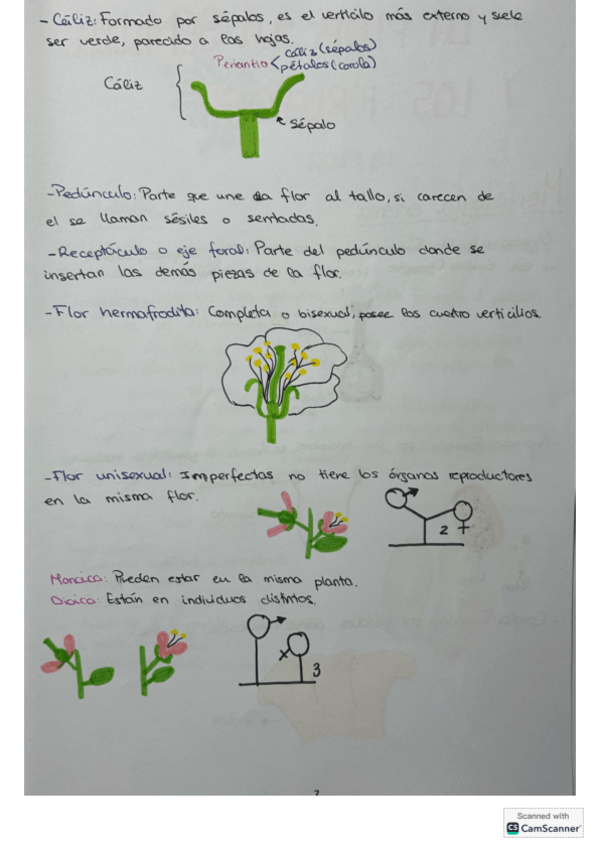 - Cáliz: Formado por sépalos, es el verticilo más externo y suele
ser verde, parecido a las hojas.
Periantio < Cáliz (sépalos)
pétalos (corola)
Cáliz
Sépalo
- Pedúnculo: Parte que une la flor al tallo, si carecen de
el se llaman sésiles o sentadas.
- Receptáculo o eje foral: Parte del pedúnculo donde se
insertan las demás piezas de la flor.
- Flor hermafrodita: Completa o bisexual, posee los cuatro verticilios.
- Flor unisexual: Imperfectas no tiene los órganos reproductores
en la misma flor.
2
Monoica: Pueden estar en la misma planta.
Dioica: Están en individuos distintos.
3
Scanned with
CS CamScanner